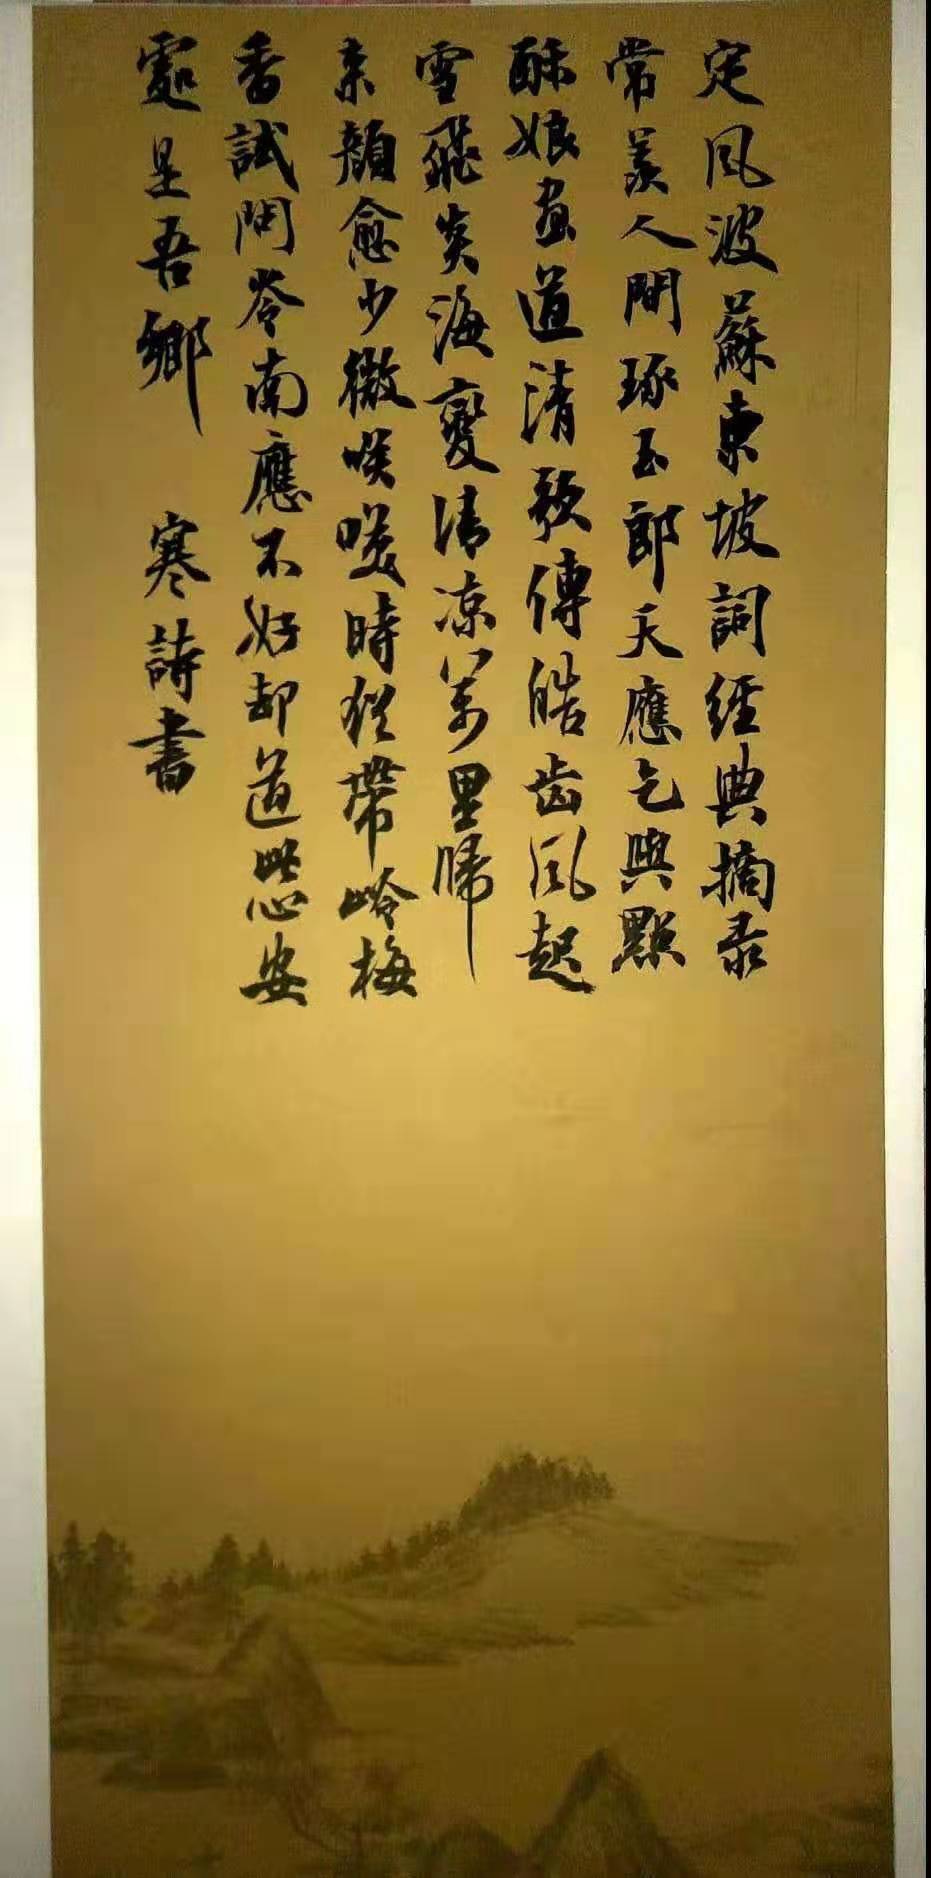 定風波蘇東坡詞經典摘录
常羨人間琢玉郎天應乞與點
酥娘盡道清歌傳皓齿風起
雪飛炎海變清凉萬里歸
来顏愈少微笑笑時猶帶岭梅
香試問岺南應不好却道此心安
處是吾鄉 寒詩書